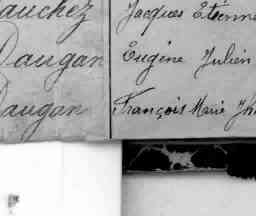 auchez Jacques Etienne
Daugan Eugène Julien
Daugan François Marie